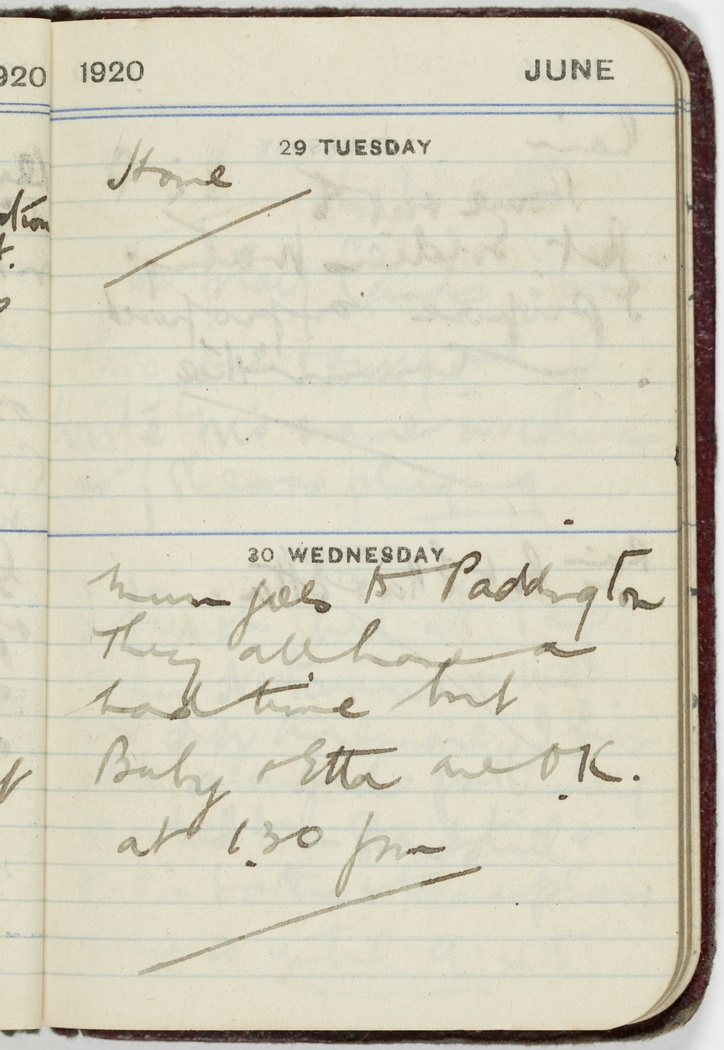 920
1920 JUNE
29 TUESDAY
Home
30 WEDNESDAY
Mum goes to Paddington
They all have a
bad time but
Baby & Etta are O.K.
at 1.30 pm